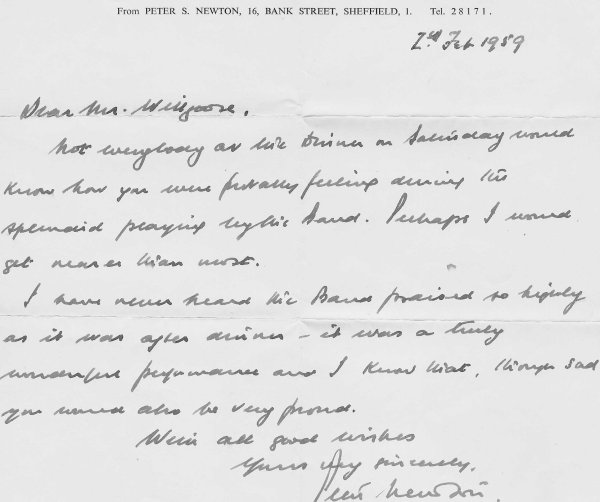 From PETER S. NEWTON, 16, BANK STREET, SHEFFIELD, 1. Tel. 28171.
2nd Feb 1959
Dear Mr. Willgoose,
Not everybody at the Dinner on Saturday would
know how you were probably feeling during the
splendid playing by the Band. Perhaps I would
get nearer than most.
I have never heard the Band praised so highly
as it was after dinner – it was a truly
wonderful performance and I know that, though sad
you would also be very proud.
With all good wishes
Yours very sincerely,
Peter Newton.